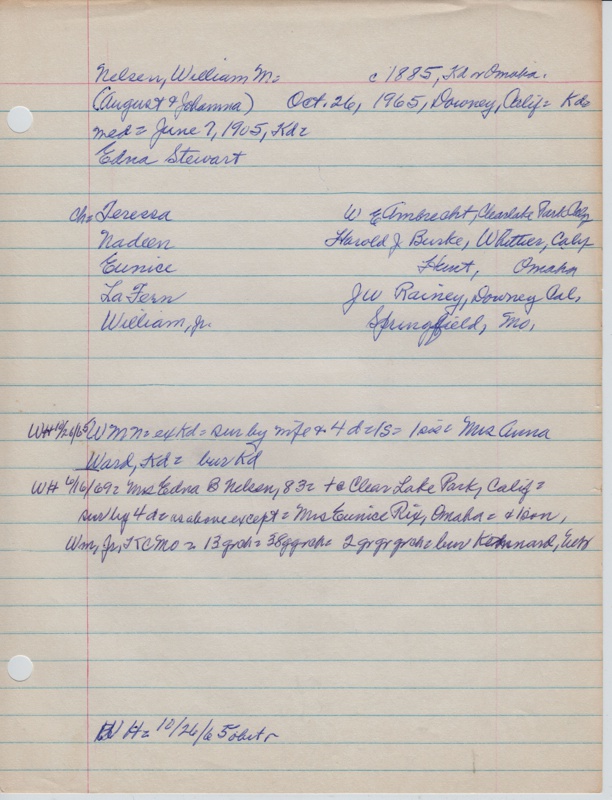 Nelsen, William M= c 1885, Kd or Omaha.
(August & Johanna) Oct. 26, 1965, Downey, Calif= Kd
med= June 7, 1905, Kd=
Edna Stewart
ch= Teressa W E Ambrecht, Clearlake Park Calif
Nadeen Harold J Burke, Whittier, Calif
Eunice Hunt, Omaha
La Fern J W Rainey, Downey Cal.
William, Jr. Springfield, Mo.
WH 10/26/65 W M N= ex Kd= sur by wife & 4 d= 1S= 1 sis= Mrs Anna
Ward, Kd= bur Kd
WH 6/16/69= Mrs Edna B Nelsen, 83= + @ Clear Lake Park, Calif=
sur by 4 d= as above except= Mrs Eunice Rix, Omaha= & 1 son,
Wm, Jr, K C Mo= 13 grch= 38 ggrch= 2 gr gr grch= bur Kennard, Nebr
WH= 10/26/65 obit r